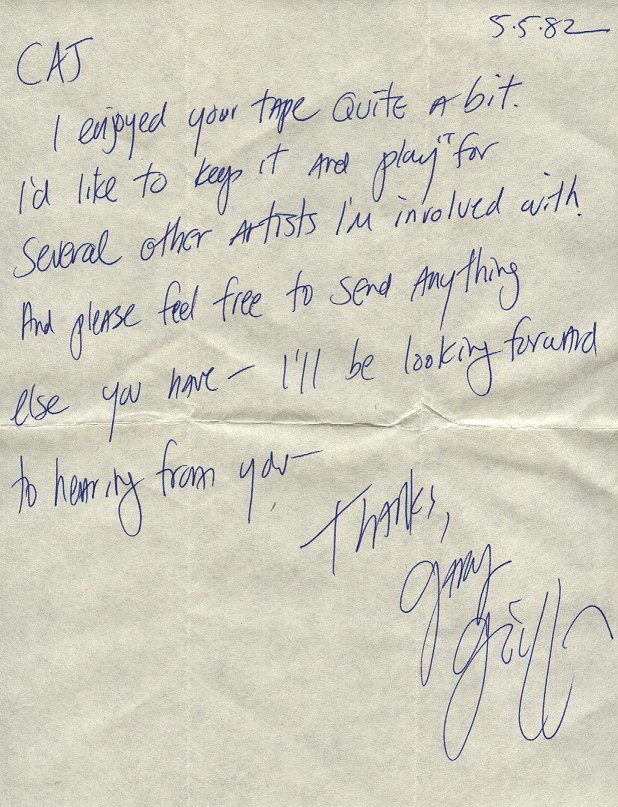 5.5.82
CAJ
I enjoyed your tape quite a bit.
I'd like to keep it and play it for
Several other Artists I'm involved with.
And please feel free to send Anything
else you have – I'll be looking forward
to hearing from you –
Thanks,
Gary